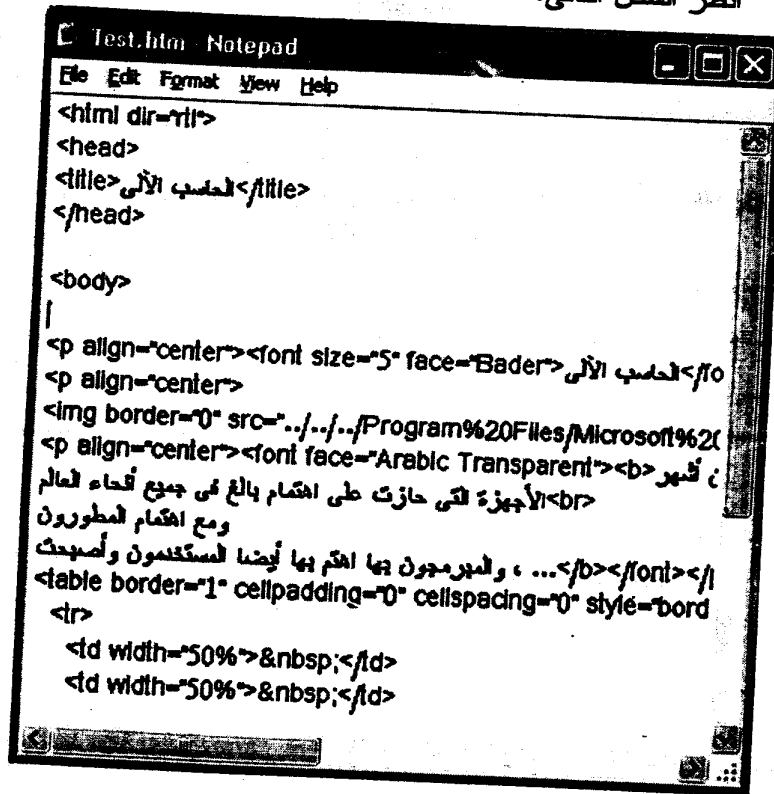 انظر الشكل التالى:
Test.htm - Notepad
File Edit Format View Help
<html dir="rtl">
<head>
<title>الحاسب الآلى</title>
</head>
<body>
<p align="center"><font size="5" face="Bader">الحاسب الآلى</fo
<p align="center">
<img border="0" src="../../../Program%20Files/Microsoft%2(
<p align="center"><font face="Arabic Transparent"><b>ن أشهر
الأجهزة التى حازت على اهتمام بالغ فى جميع أنحاء العالم<br>
ومع اهتمام المطورون
والمبرمجون بها اهتم بها أيضا المستخدمون وأصبحت ، ...</b></font></
<table border="1" cellpadding="0" cellspacing="0" style="bord
<tr>
<td width="50%">&nbsp;</td>
<td width="50%">&nbsp;</td>